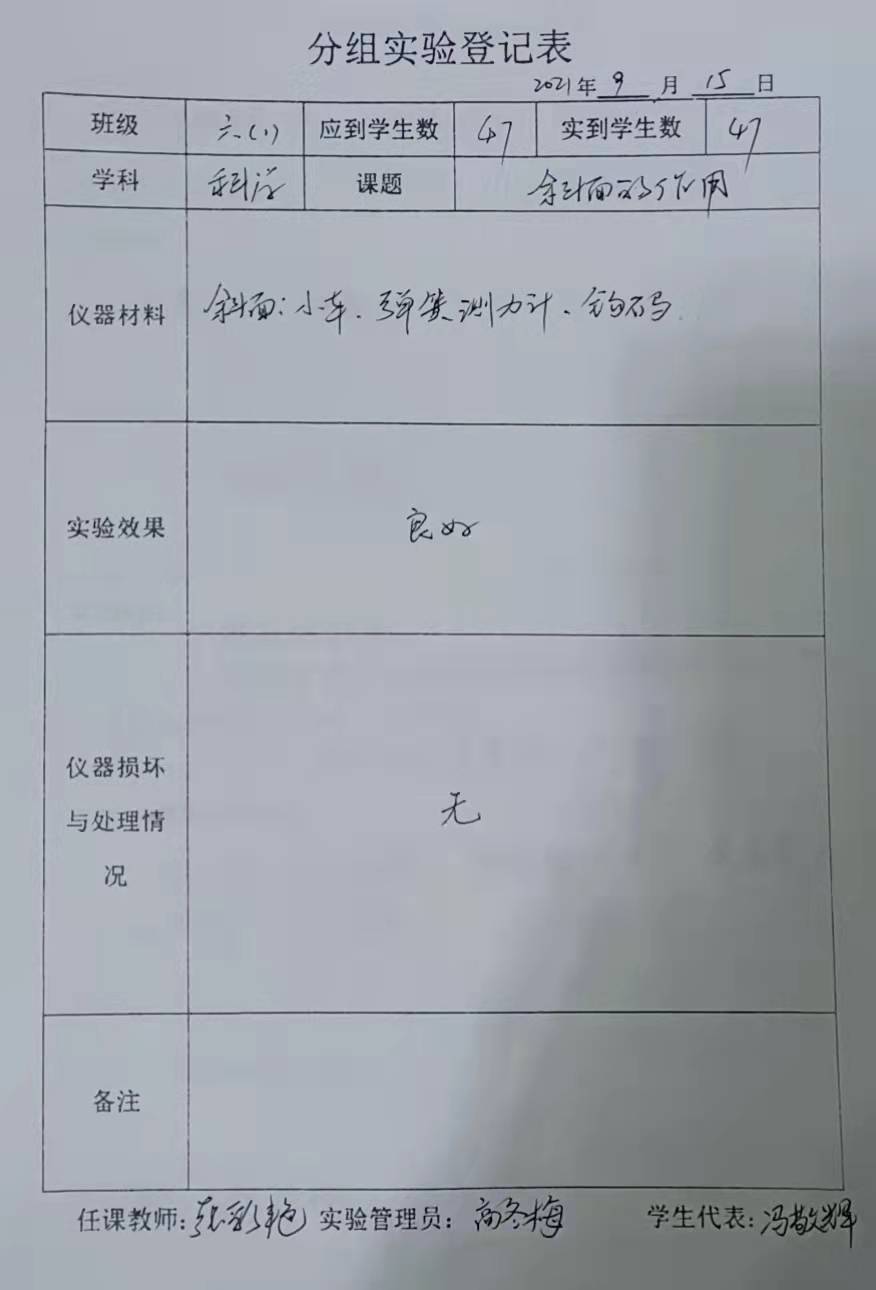 分组实验登记表
2021年 9 月 15 日
班级 六(1) 应到学生数 47 实到学生数 47
学科 科学 课题 斜面的作用
仪器材料 斜面：小车、弹簧测力计、钩码
实验效果 良好
仪器损坏
与处理情 无
况
备注
任课教师:张彩艳 实验管理员：高冬梅 学生代表:冯敬辉